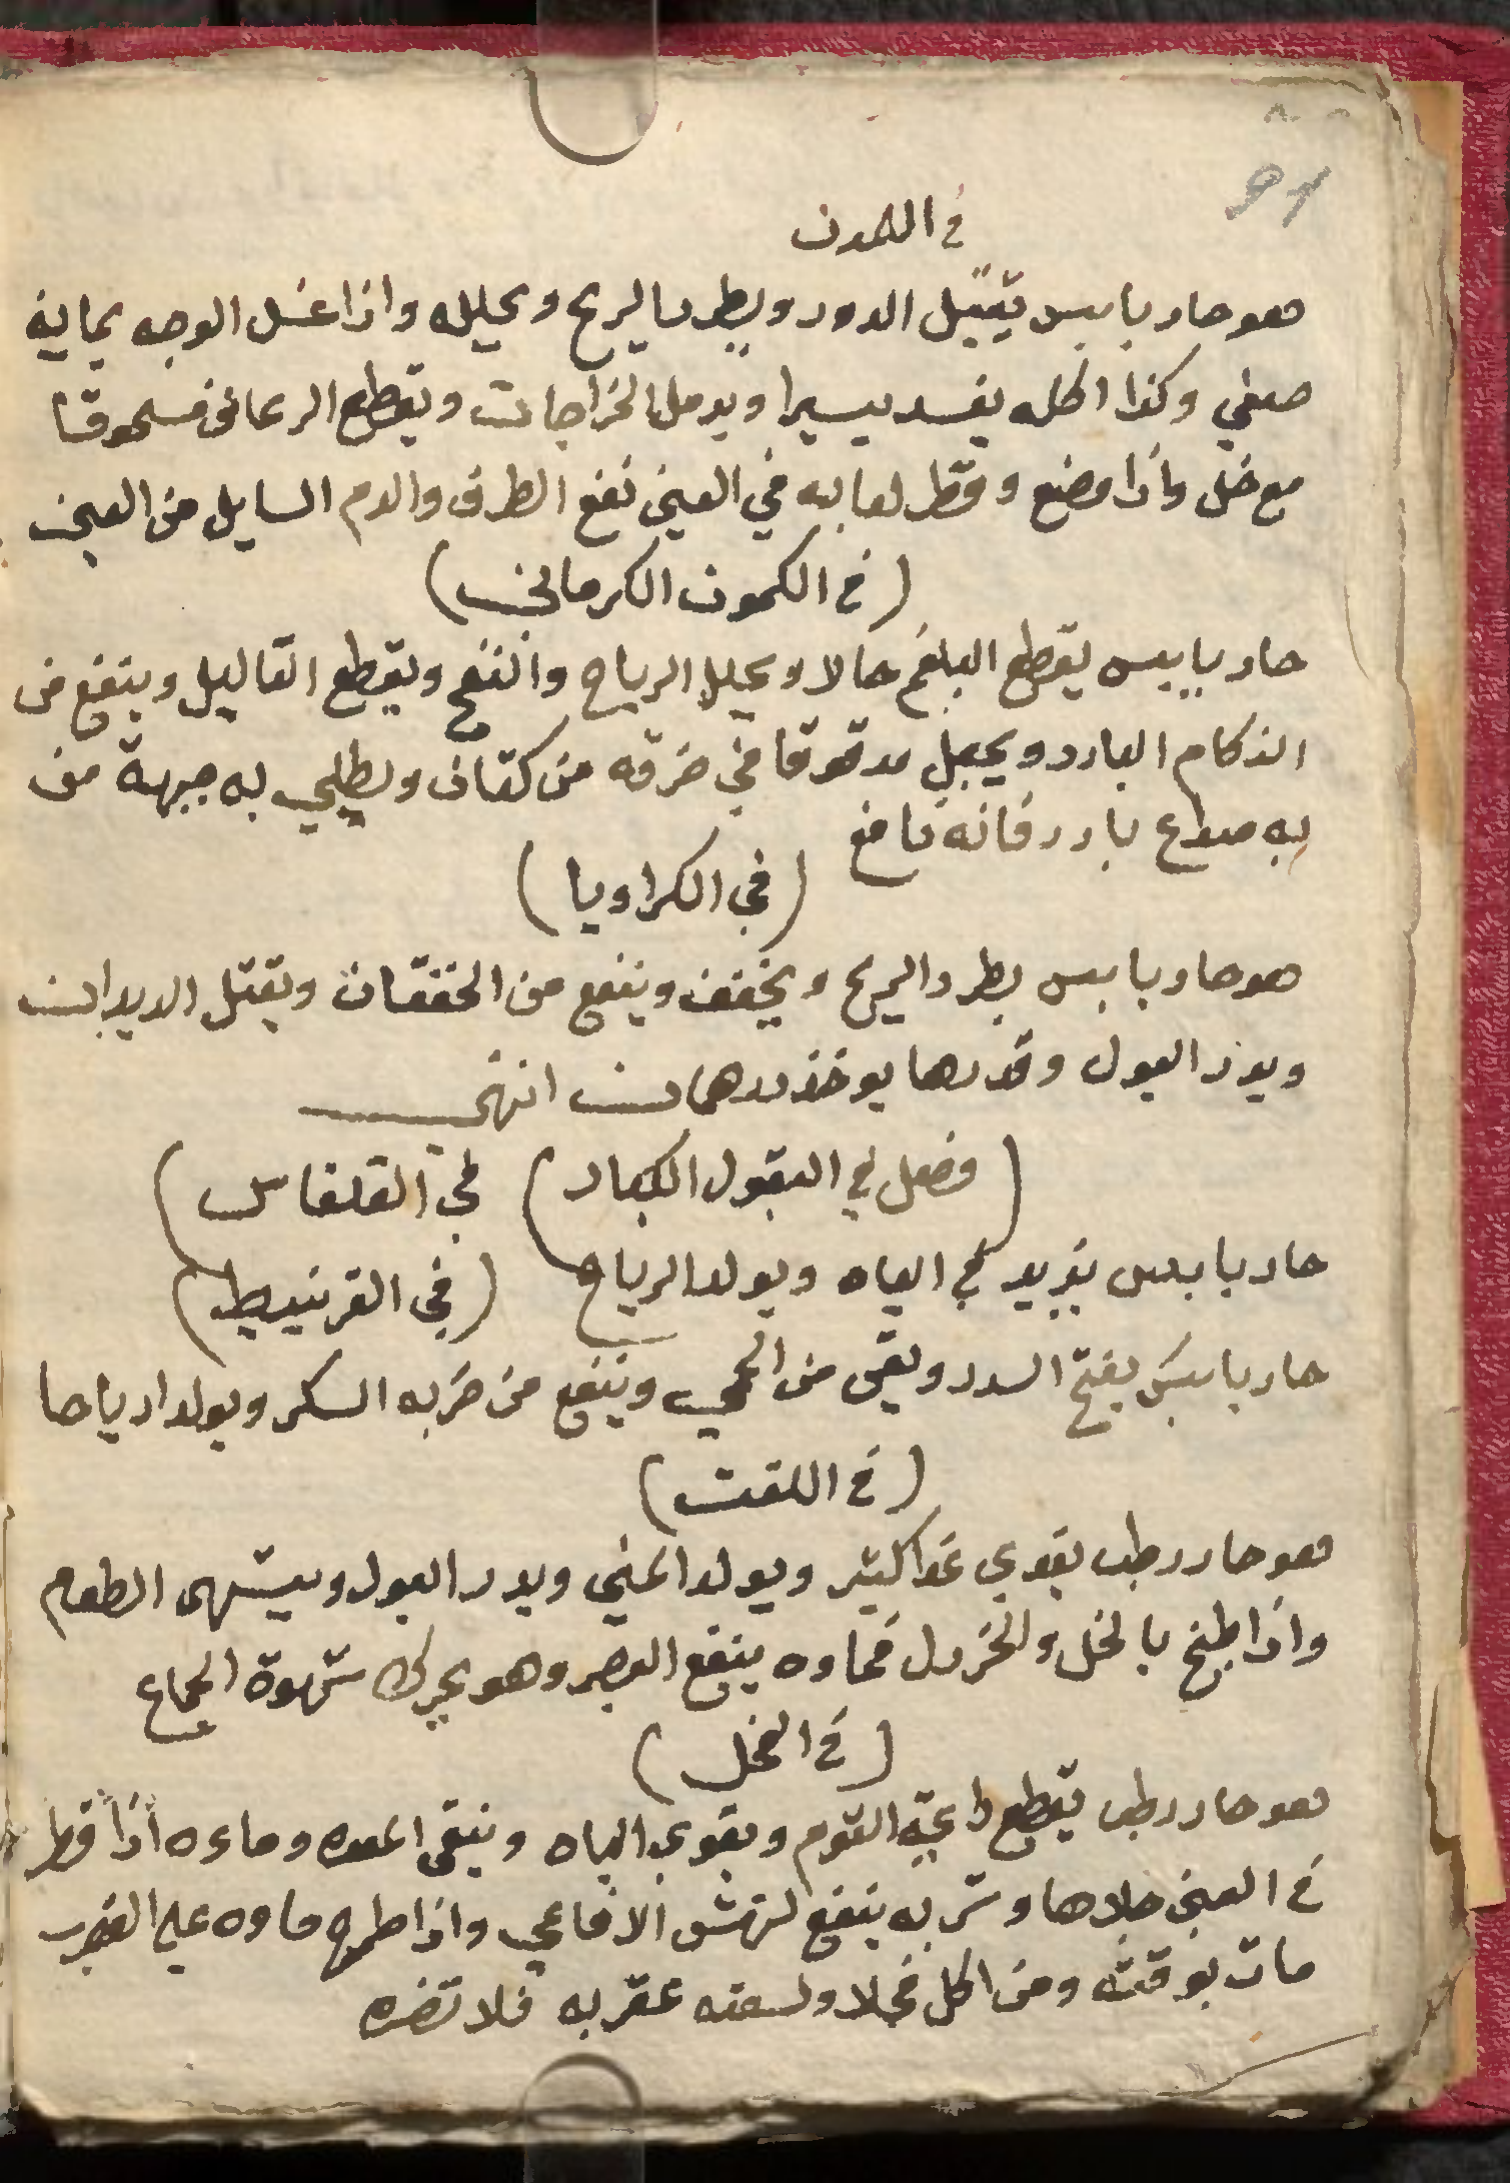 91
في الكمون
هو حار يابس يقتل الدود ويطرد الريح ويحلله واذا غسل الوجه بمايه
صفي وكذا اكله يفسد يسيرا ويدمل الخراجات ويقطع الرعاف مسحوقا
مع خل واذا مضغ وقطر لعابه في العين نفع الطرف والدم السايل من العين
(في الكمون الكرماني)
حار يابس يقطع البلغم حالا ويحلل الرياح والنفخ ويقطع التاليل وينفع من
الزكام البارد ويجعل مدقوقا في خرقه من كتان ويطلي به جبهة من
به صداع بارد فانه نافع
(في الكراويا)
هو حار يابس يطرد الريح ويخفف وينفع من الخفقان ويقتل الديدان
ويدر البول وقدرها يوخذ درهمان انتهى
(فصل في البقول الكبار) في القلقاس)
حار يابس يزيد في الباه ويولد الرياح (في القرنبيط)
حار يابس يفتح السدد ويقي من الحمي وينفع من ضربه السكر ويولد ارياحا
(في اللفت)
هو حار رطب يغدي غدا كثير ويولد المني ويدر البول ويشهى الطعام
واذا طبخ بالخل والخردل فماوه ينفع البصر وهو يحرك شهوة الجماع
(في الفجل)
هو حار رطب يقطع رايحة الثوم ويقوي الباه وينقى المعده وماءه اذا قطر
في العين جلاها وشربه ينفع لنهش الافاعي واذا طرح ماوه علي العقرب
مات بوقته ومن اكل فجلا ولسعته عقربه فلا تضره